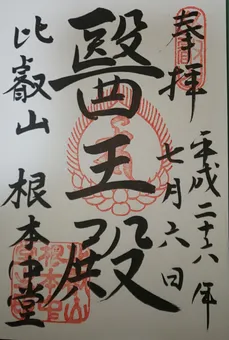 奉拝
平成二十六年
七月六日
醫王殿
比叡山 根本中堂